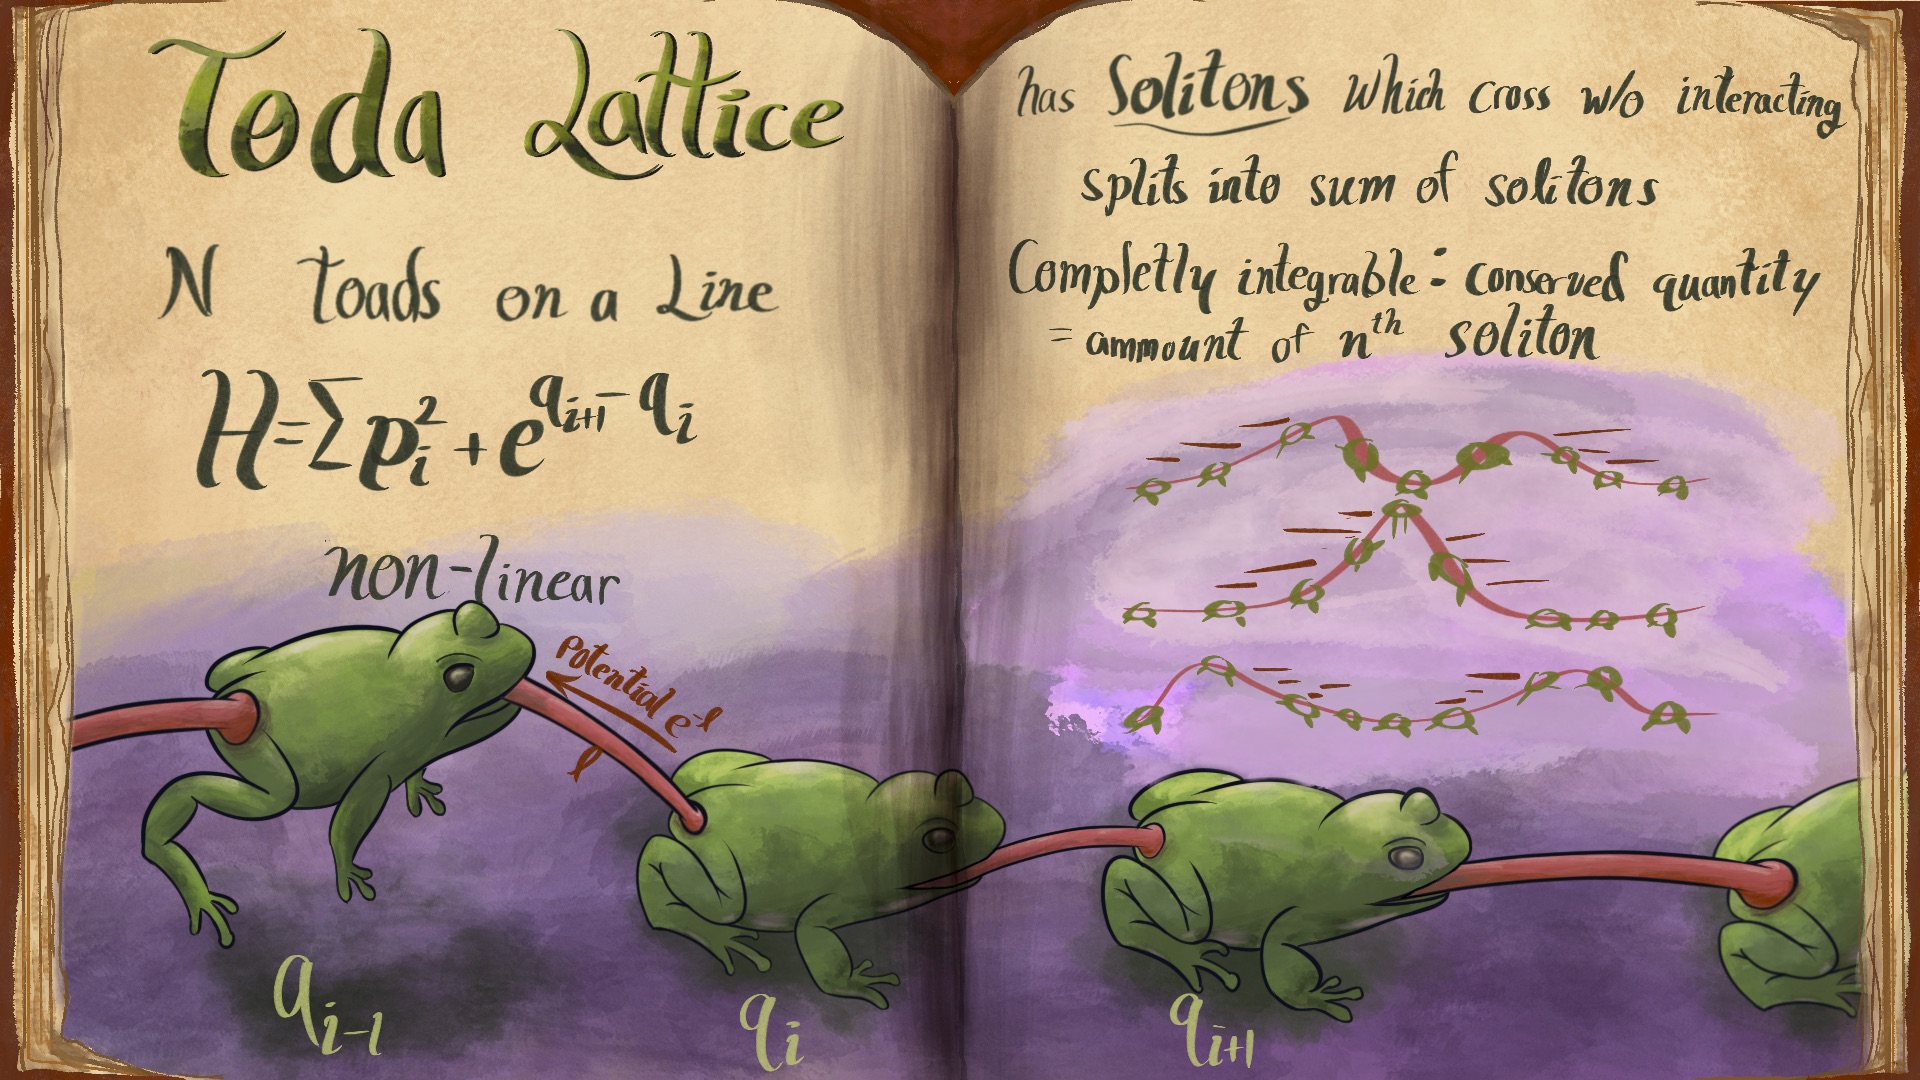 Toda Lattice
N toads on a Line
H=∑ p_i^2 + e^{q_{i+1} - q_i}
non-linear
Potential e^{-l}
l
q_{i-1}
q_i
has Solitons which cross w/o interacting
splits into sum of solitons
Completly integrable: conserved quantity
= ammount of n^{th} soliton
q_{i+1}